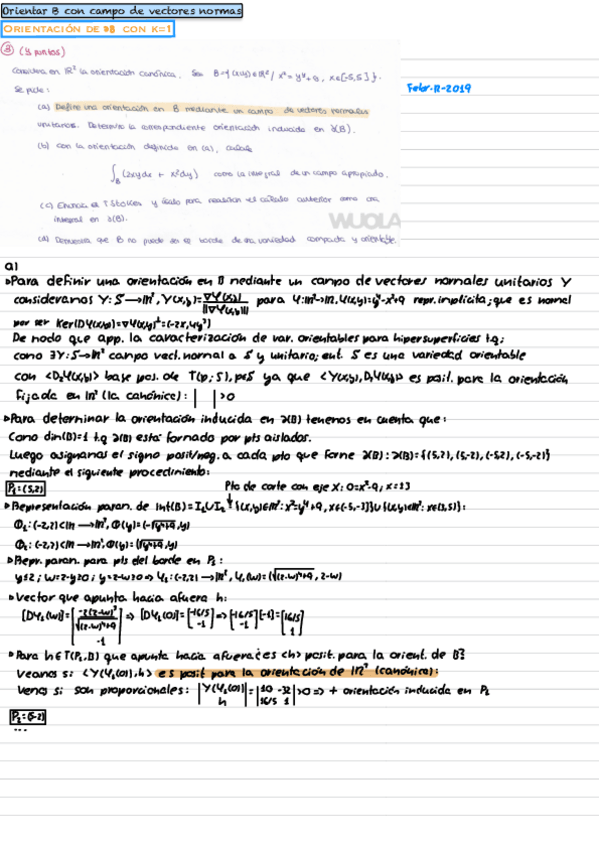 Orientar B con campo de vectores normas
ORIENTACIÓN DE ∂B CON K=1
(4 puntos)
Febr-R-2019
Considera en ℝ² la orientación canónica. Sea B={(x,y)∈ℝ² / x²=y⁴+9, x∈[-5,5]}.
Se pide:
(a) Define una orientación en B mediante un campo de vectores normales
unitarios. Determina la correspondiente orientación inducida en ∂(B).
(b) Con la orientación definida en (a), calcula
∫_B (2xydx + x²dy) como la integral de un campo apropiado.
(c) Enuncia el T. Stokes y úsalo para realizar el cálculo anterior como una
integral en ∂(B).
WUOLA
(d) Demuestra que B no puede ser el borde de una variedad compacta y orientable.
a)
▹Para definir una orientación en B mediante un campo de vectores normales unitarios Y
consideramos Y: S→ℝ², Y(x,y)=∇Ψ(x,y)/||∇Ψ(x,y)|| para Ψ:ℝ²→ℝ, Ψ(x,y)=y⁴-x²+9 repr. implícita; que es normal
por ser Ker(DΨ(x,y))=∇Ψ(x,y)^⊥=(-2x,4y³)
De modo que app. la caracterización de var. orientables para hipersuperficies t.q.
como ∃Y:S→ℝ² campo vect. normal a S y unitario; ent. S es una variedad orientable
con base pos. de T(p;S), p∈S ya que es posit. para la orientación
fijada en ℝ² (la canónica): | |>0
▹Para determinar la orientación inducida en ∂(B) tenemos en cuenta que:
Como dim(B)=1 t.q ∂(B) está formado por pts aislados.
Luego asignamos el signo posit/neg. a cada pto que forme ∂(B): ∂(B)={(5,2), (5,-2), (-5,2), (-5,-2)}
mediante el siguiente procedimiento:
P₁=(5,2)
Pto de corte con eje X: 0=x²-9; x=±3
▹Representación param. de Int(B)=I₁∪I₂
Φ₁:(-2,2)⊂ℝ→ℝ², Φ(y)=(-√(y⁴+9),y)
Φ₂:(-2,2)⊂ℝ→ℝ², Φ(y)=(√(y⁴+9),y)
▹Repr. param. para pts del borde en P₁:
y≤2; w=2-y≥0; y=2-w≥0 ⇒ Ψ₁:(-2,2)→ℝ², Ψ₁(w)=(√((2-w)⁴+9), 2-w)
▹Vector que apunta hacia afuera h:
[DΨ₁(w)]=[-2(2-w)³/√((2-w)⁴+9) -1] ⇒ [DΨ₁(0)]=[-16/5 -1] ⇒ [-16/5 -1][-1]=[16/5 1]
▹Para h∈T(P₁,B) que apunta hacia afuera ¿es <h> posit. para la orient. de B?
Veamos si: <Y(Ψ₁(0)),h> es posit para la orientación de ℝ² (canónica):
Vemos si son proporcionales: |Y(Ψ₁(0)) h|=|-10 -32 16/5 1|>0 ⇒ + orientación inducida en P₁
P₂=(5,-2)
...